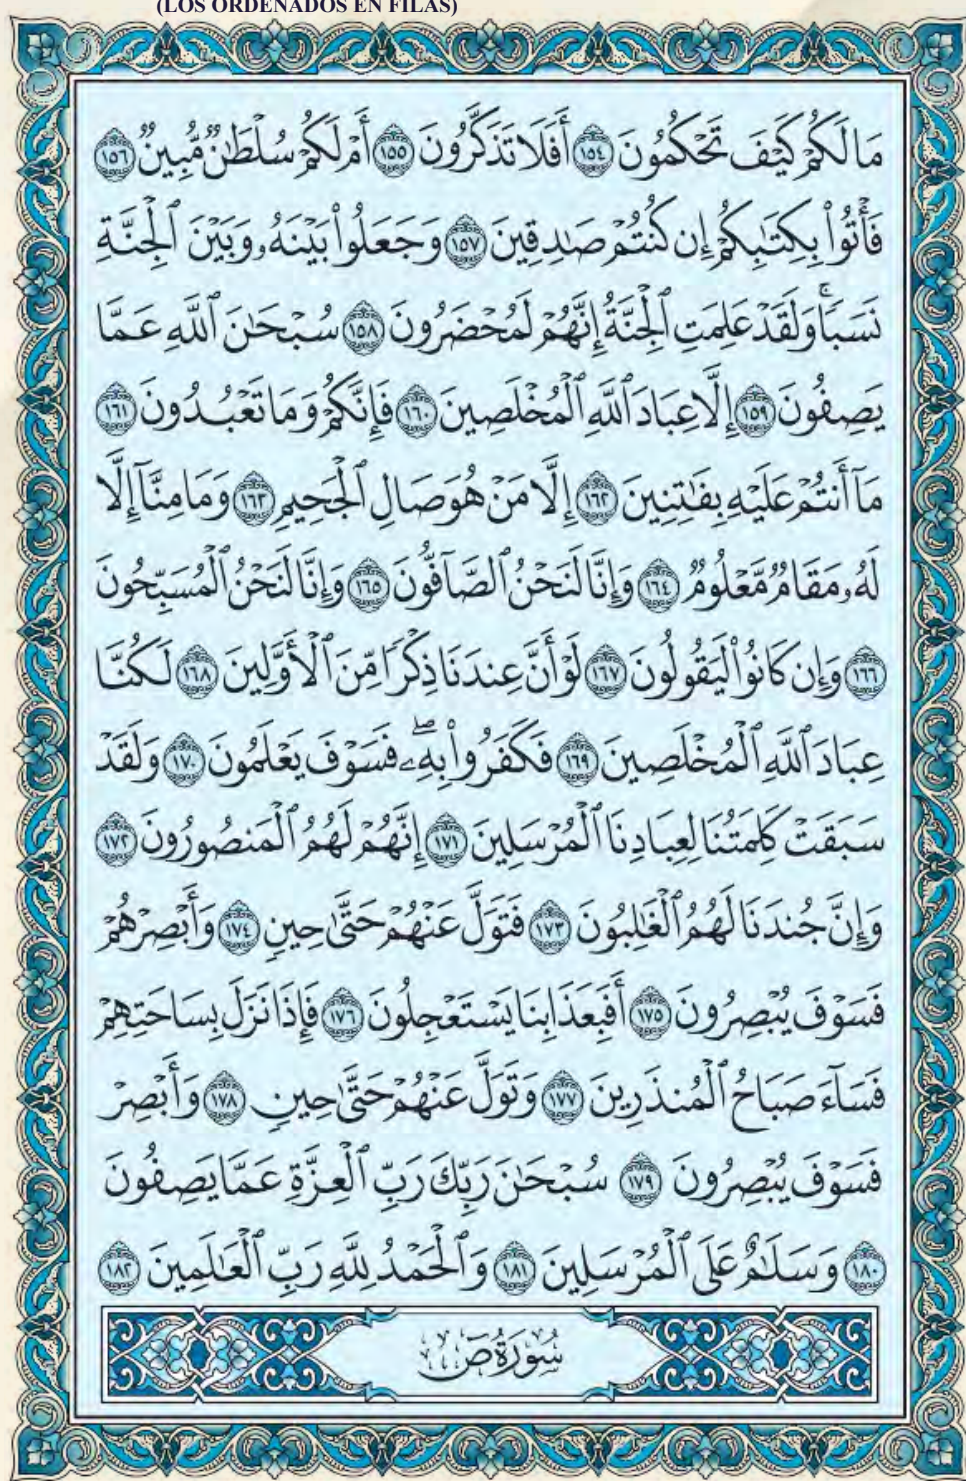 (LOS ORDENADOS EN FILAS)
مَا لَكُمْ كَيْفَ تَحْكُمُونَ ١٥٤ أَفَلَا تَذَكَّرُونَ ١٥٥ أَمْ لَكُمْ سُلْطَٰنٌ مُّبِينٌ ١٥٦
فَأْتُوا۟ بِكِتَٰبِكُمْ إِن كُنتُمْ صَٰدِقِينَ ١٥٧ وَجَعَلُوا۟ بَيْنَهُۥ وَبَيْنَ ٱلْجِنَّةِ
نَسَبًاۚ وَلَقَدْ عَلِمَتِ ٱلْجِنَّةُ إِنَّهُمْ لَمُحْضَرُونَ ١٥٨ سُبْحَٰنَ ٱللَّهِ عَمَّا
يَصِفُونَ ١٥٩ إِلَّا عِبَادَ ٱللَّهِ ٱلْمُخْلَصِينَ ١٦٠ فَإِنَّكُمْ وَمَا تَعْبُدُونَ ١٦١
مَآ أَنتُمْ عَلَيْهِ بِفَٰتِنِينَ ١٦٢ إِلَّا مَنْ هُوَ صَالِ ٱلْجَحِيمِ ١٦٣ وَمَا مِنَّآ إِلَّا
لَهُۥ مَقَامٌ مَّعْلُومٌ ١٦٤ وَإِنَّا لَنَحْنُ ٱلصَّآفُّونَ ١٦٥ وَإِنَّا لَنَحْنُ ٱلْمُسَبِّحُونَ
١٦٦ وَإِن كَانُوا۟ لَيَقُولُونَ ١٦٧ لَوْ أَنَّ عِندَنَا ذِكْرًا مِّنَ ٱلْأَوَّلِينَ ١٦٨ لَكُنَّا
عِبَادَ ٱللَّهِ ٱلْمُخْلَصِينَ ١٦٩ فَكَفَرُوا۟ بِهِۦۖ فَسَوْفَ يَعْلَمُونَ ١٧٠ وَلَقَدْ
سَبَقَتْ كَلِمَتُنَا لِعِبَادِنَا ٱلْمُرْسَلِينَ ١٧١ إِنَّهُمْ لَهُمُ ٱلْمَنصُورُونَ ١٧٢
وَإِنَّ جُندَنَا لَهُمُ ٱلْغَٰلِبُونَ ١٧٣ فَتَوَلَّ عَنْهُمْ حَتَّىٰ حِينٍ ١٧٤ وَأَبْصِرْهُمْ
فَسَوْفَ يُبْصِرُونَ ١٧٥ أَفَبِعَذَابِنَا يَسْتَعْجِلُونَ ١٧٦ فَإِذَا نَزَلَ بِسَاحَتِهِمْ
فَسَآءَ صَبَاحُ ٱلْمُنذَرِينَ ١٧٧ وَتَوَلَّ عَنْهُمْ حَتَّىٰ حِينٍ ١٧٨ وَأَبْصِرْ
فَسَوْفَ يُبْصِرُونَ ١٧٩ سُبْحَٰنَ رَبِّكَ رَبِّ ٱلْعِزَّةِ عَمَّا يَصِفُونَ
١٨٠ وَسَلَٰمٌ عَلَى ٱلْمُرْسَلِينَ ١٨١ وَٱلْحَمْدُ لِلَّهِ رَبِّ ٱلْعَٰلَمِينَ ١٨٢
سُورَةُ صٓ